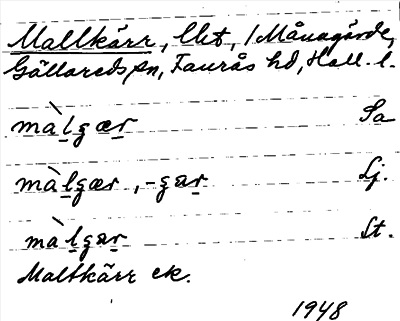 Mallkärr, lht, 1 Månagärde,
Gällareds sn, Faurås hd, Hall. l.
màlgær Sa
màlgær, -gar Lj.
màlgar St.
Maltkärr ek.
1948